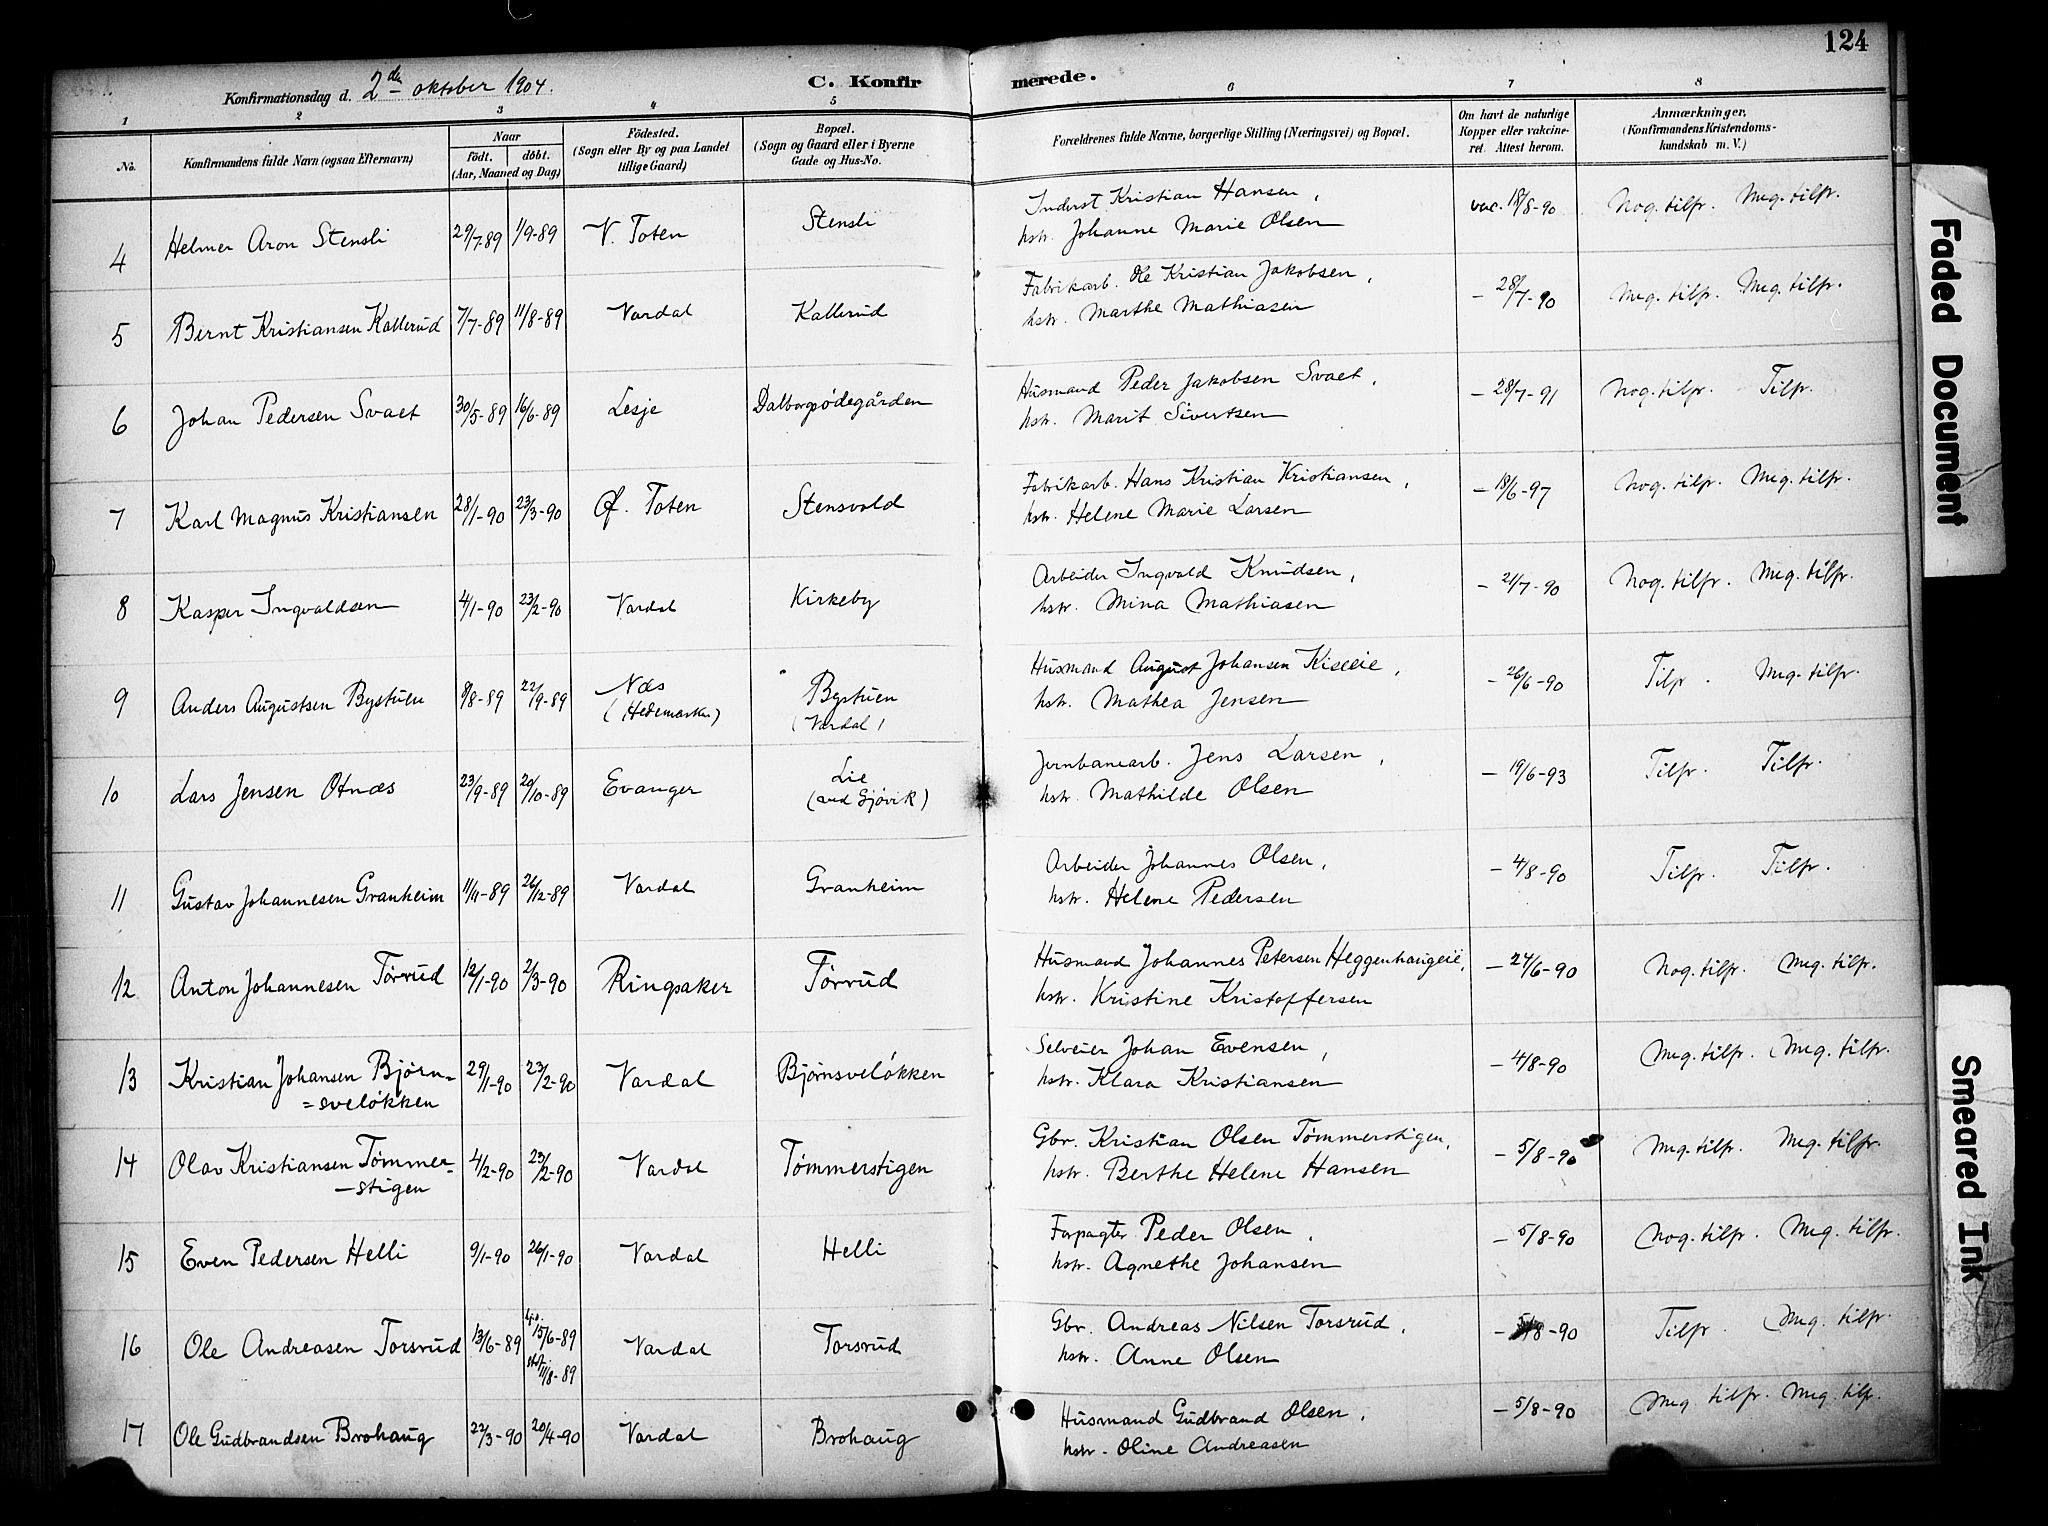 124
Konfirmationsdag d. 2den oktober 1904.
C. Konfirmerede.
1 2 3 4 5 6 7 8
No.
Konfirmandens fulde Navn (ogsaa Efternavn)
Naar
født. døbt.
(Aar, Maaned og Dag)
Fødested.
(Sogn eller By og paa Landet
tillige Gaard)
Bopæl.
(Sogn og Gaard eller i Byerne
Gade og Hus-No.
Forældrenes fulde Navne, borgerlige Stilling (Næringsvei) og Bopæl.
Om havt de naturlige
Kopper eller vakcine-
ret. Attest herom.
Anmærkninger,
(Konfirmandens Kristendoms-
kundskab m. V.)
4 Helmer Aron Stensli 29/7-89 1/9-89 V. Toten Stensli Inderst Kristian Hansen, vac. 18/8-90 Nog. tilfr. Meg. tilfr.
hstr. Johanne Marie Olsen
5 Bernt Kristiansen Kallerud 7/7-89 11/8-89 Vardal Kallerud Fabrikarb. Ole Kristian Jakobsen, - 28/7-90 Meg. tilfr. Meg. tilfr.
hstr. Marthe Mathiasen
6 Johan Pedersen Svaet 30/5-89 16/6-89 Lesje Dalborgsødegården Husmand Peder Jakobsen Svaet, - 28/7-91 Nog. tilfr. Tilfr.
hstr. Marit Sivertsen
7 Karl Magnus Kristiansen 28/1-90 23/3-90 Ø. Toten Stensvold Fabrikarb. Hans Kristian Kristiansen, - 18/6-97 Nog. tilfr. Meg. tilfr.
hstr. Helene Marie Larsen
8 Kasper Ingvaldsen 4/1-90 23/2-90 Vardal Kirkeby Arbeider Ingvald Knudsen, - 21/7-90 Nog. tilfr. Meg. tilfr.
hstr. Mina Mathiasen
9 Anders Augustsen Bystuen 8/8-89 22/9-89 Næs Bystuen Husmand August Johansen Kiseeie, - 26/6-90 Tilfr. Meg. tilfr.
(Hedemarken) (Vardal) hstr. Mathea Jensen
10 Lars Jensen Otnæs 23/9-89 20/10-89 Evanger Lie Jernbanearb. Jens Larsen, - 19/6-93 Tilfr. Tilfr.
(ved Gjøvik) hstr. Mathilde Olsen
11 Gustav Johannesen Granheim 11/11-89 26/12-89 Vardal Granheim Arbeider Johannes Olsen, - 4/8-90 Tilfr. Tilfr.
hstr. Helene Pedersen
12 Anton Johannesen Tørrud 12/1-90 2/3-90 Ringsaker Tørrud Husmand Johannes Petersen Heggenhaugeie, - 24/6-90 Nog. tilfr. Meg. tilfr.
hstr. Kristine Kristoffersen
13 Kristian Johansen Bjørn= 29/1-90 23/2-90 Vardal Bjørnsveløkken Selveier Johan Evensen, - 4/8-90 Meg. tilfr. Meg. tilfr.
=sveløkken hstr. Klara Kristiansen
14 Olav Kristiansen Tømmer- 4/2-90 23/2-90 Vardal Tømmerstigen Gbr. Kristian Olsen Tømmerstigen, - 5/8-90 Meg. tilfr. Meg. tilfr.
-stigen hstr. Berthe Helene Hansen
15 Even Pedersen Helli 9/1-90 26/1-90 Vardal Helli Forpagter Peder Olsen, - 5/8-90 Nog. tilfr. Meg. tilfr.
hstr. Agnethe Johansen
16 Ole Andreasen Torsrud 13/6-89 hjd. 15/6-89 Vardal Torsrud Gbr. Andreas Nilsen Torsrud, - 5/8-90 Tilfr. Meg. tilfr.
stf. 11/8-89 hstr. Anne Olsen
17 Ole Gudbrandsen Brohaug 22/3-90 20/4-90 Vardal Brohaug Husmand Gudbrand Olsen, - 5/8-90 Meg. tilfr. Meg. tilfr.
hstr. Oline Andreasen
Faded Document
Smeared Ink